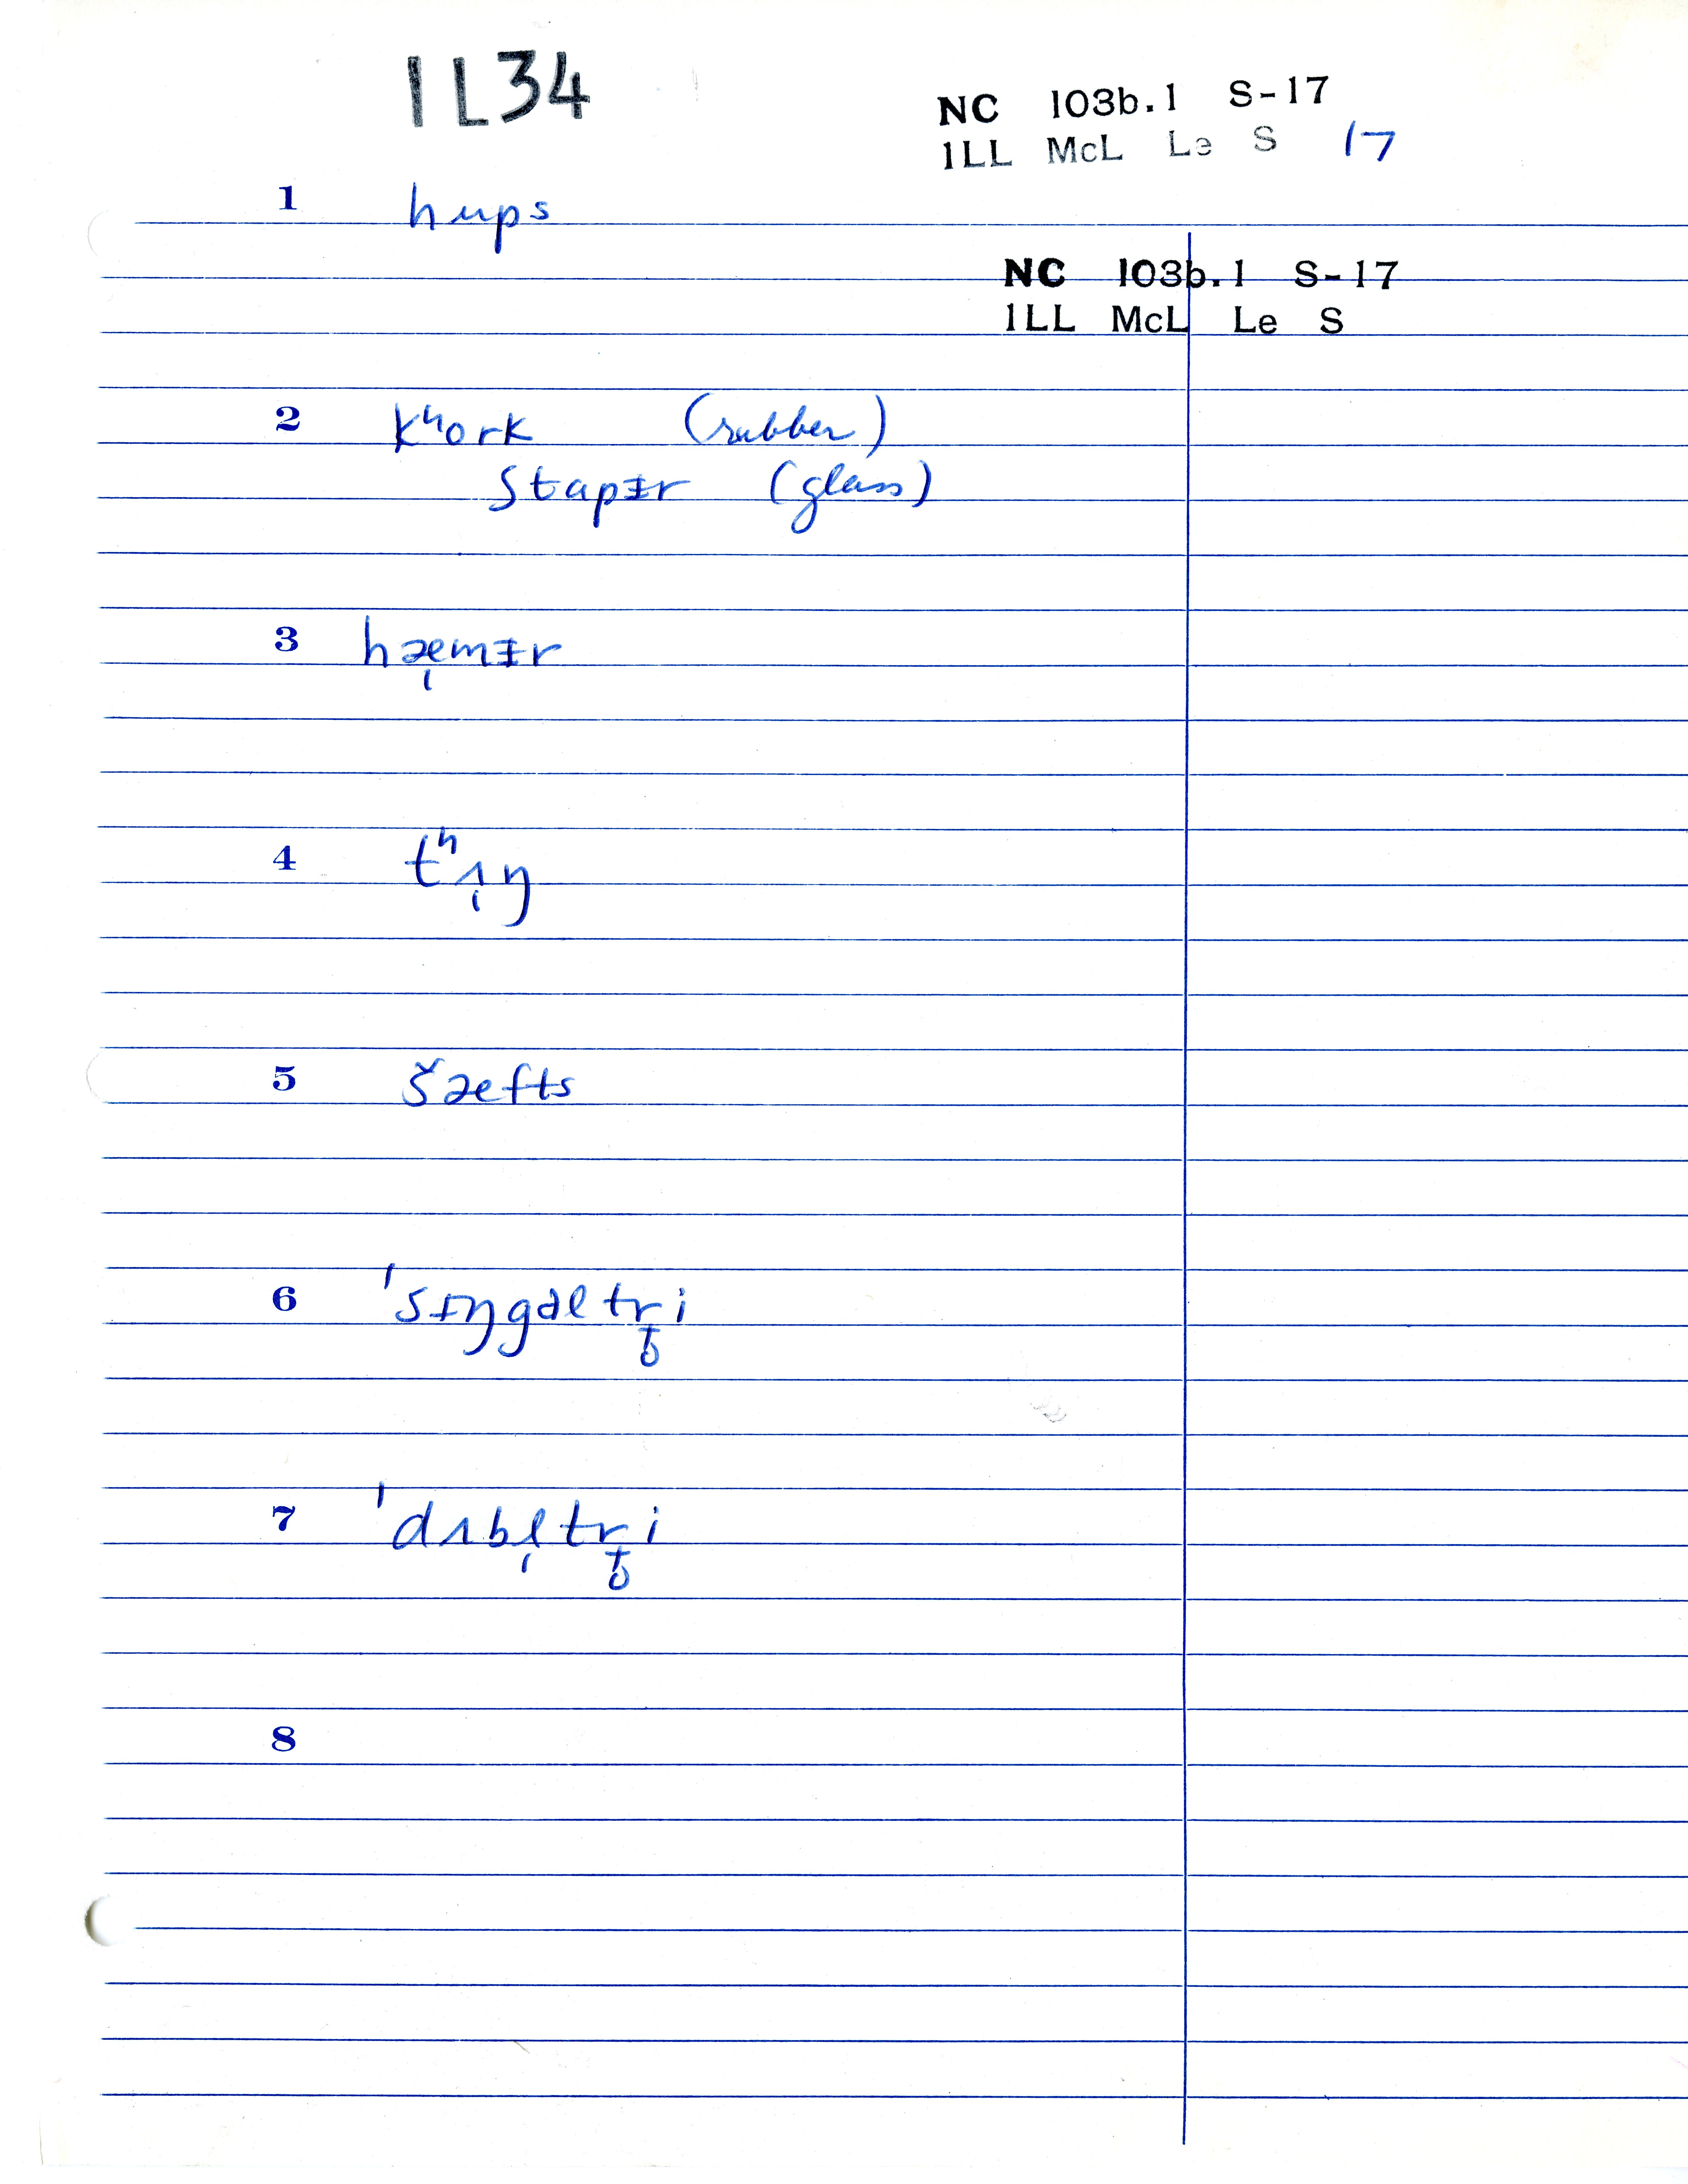 1L34
NC 103b.1 S-17
1LL McL Le S 17
1 hups
NC 103b.1 S-17
1LL McL Le S
2 kʰork (rubber)
stapᵻr (glass)
3 hæ̩mᵻr
4 tʰʌ̩ŋ
5 šæfts
6 'sᵻŋgəltr̥i
7 'dʌbl̩tr̥i
8